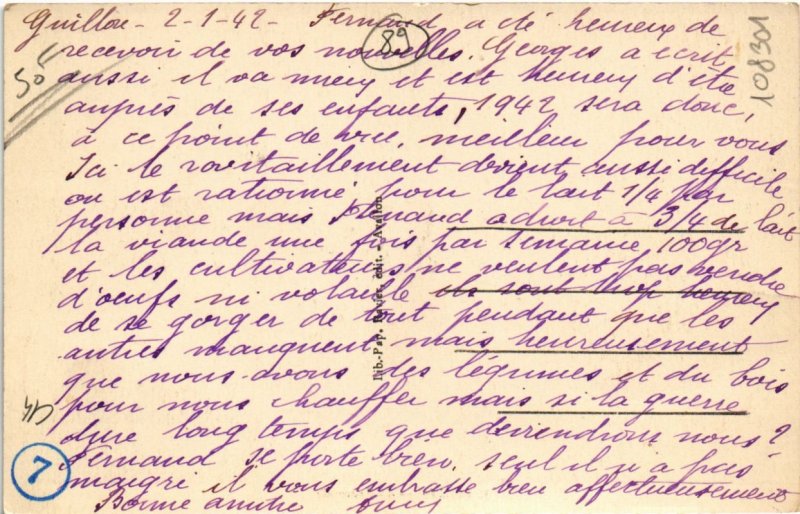 Guillon - 2-1-42 - Fernand a été heureux de
recevoir de vos nouvelles. Georges a écrit,
aussi il va mieux et est heureux d'être
auprès de ses enfants, 1942 sera donc,
à ce point de vue, meilleur pour vous
Ici le ravitaillement devient aussi difficile
on est rationné pour le lait 1/4 par
personne mais Fernand a droit à 3/4 de lait
la viande une fois par semaine 100gr
et les cultivateurs ne veulent pas vendre
d'oeufs ni volaille ils sont trop heureux
de se gorger de tout pendant que les
autres manquent mais heureusement
que nous avons des légumes et du bois
pour nous chauffer mais si la guerre
dure longtemps que deviendrons nous?
Fernand se porte bien, seul il n'a pas
maigri il vous embrasse bien affectueusement
Bonne amitié
89
108301
50F
7
Lib.-Pap. édit. - Avallon